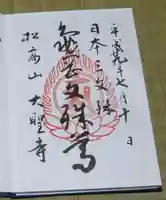 平成九年七月十日
日本三文殊
亀岡文殊尊
松高山 大聖寺